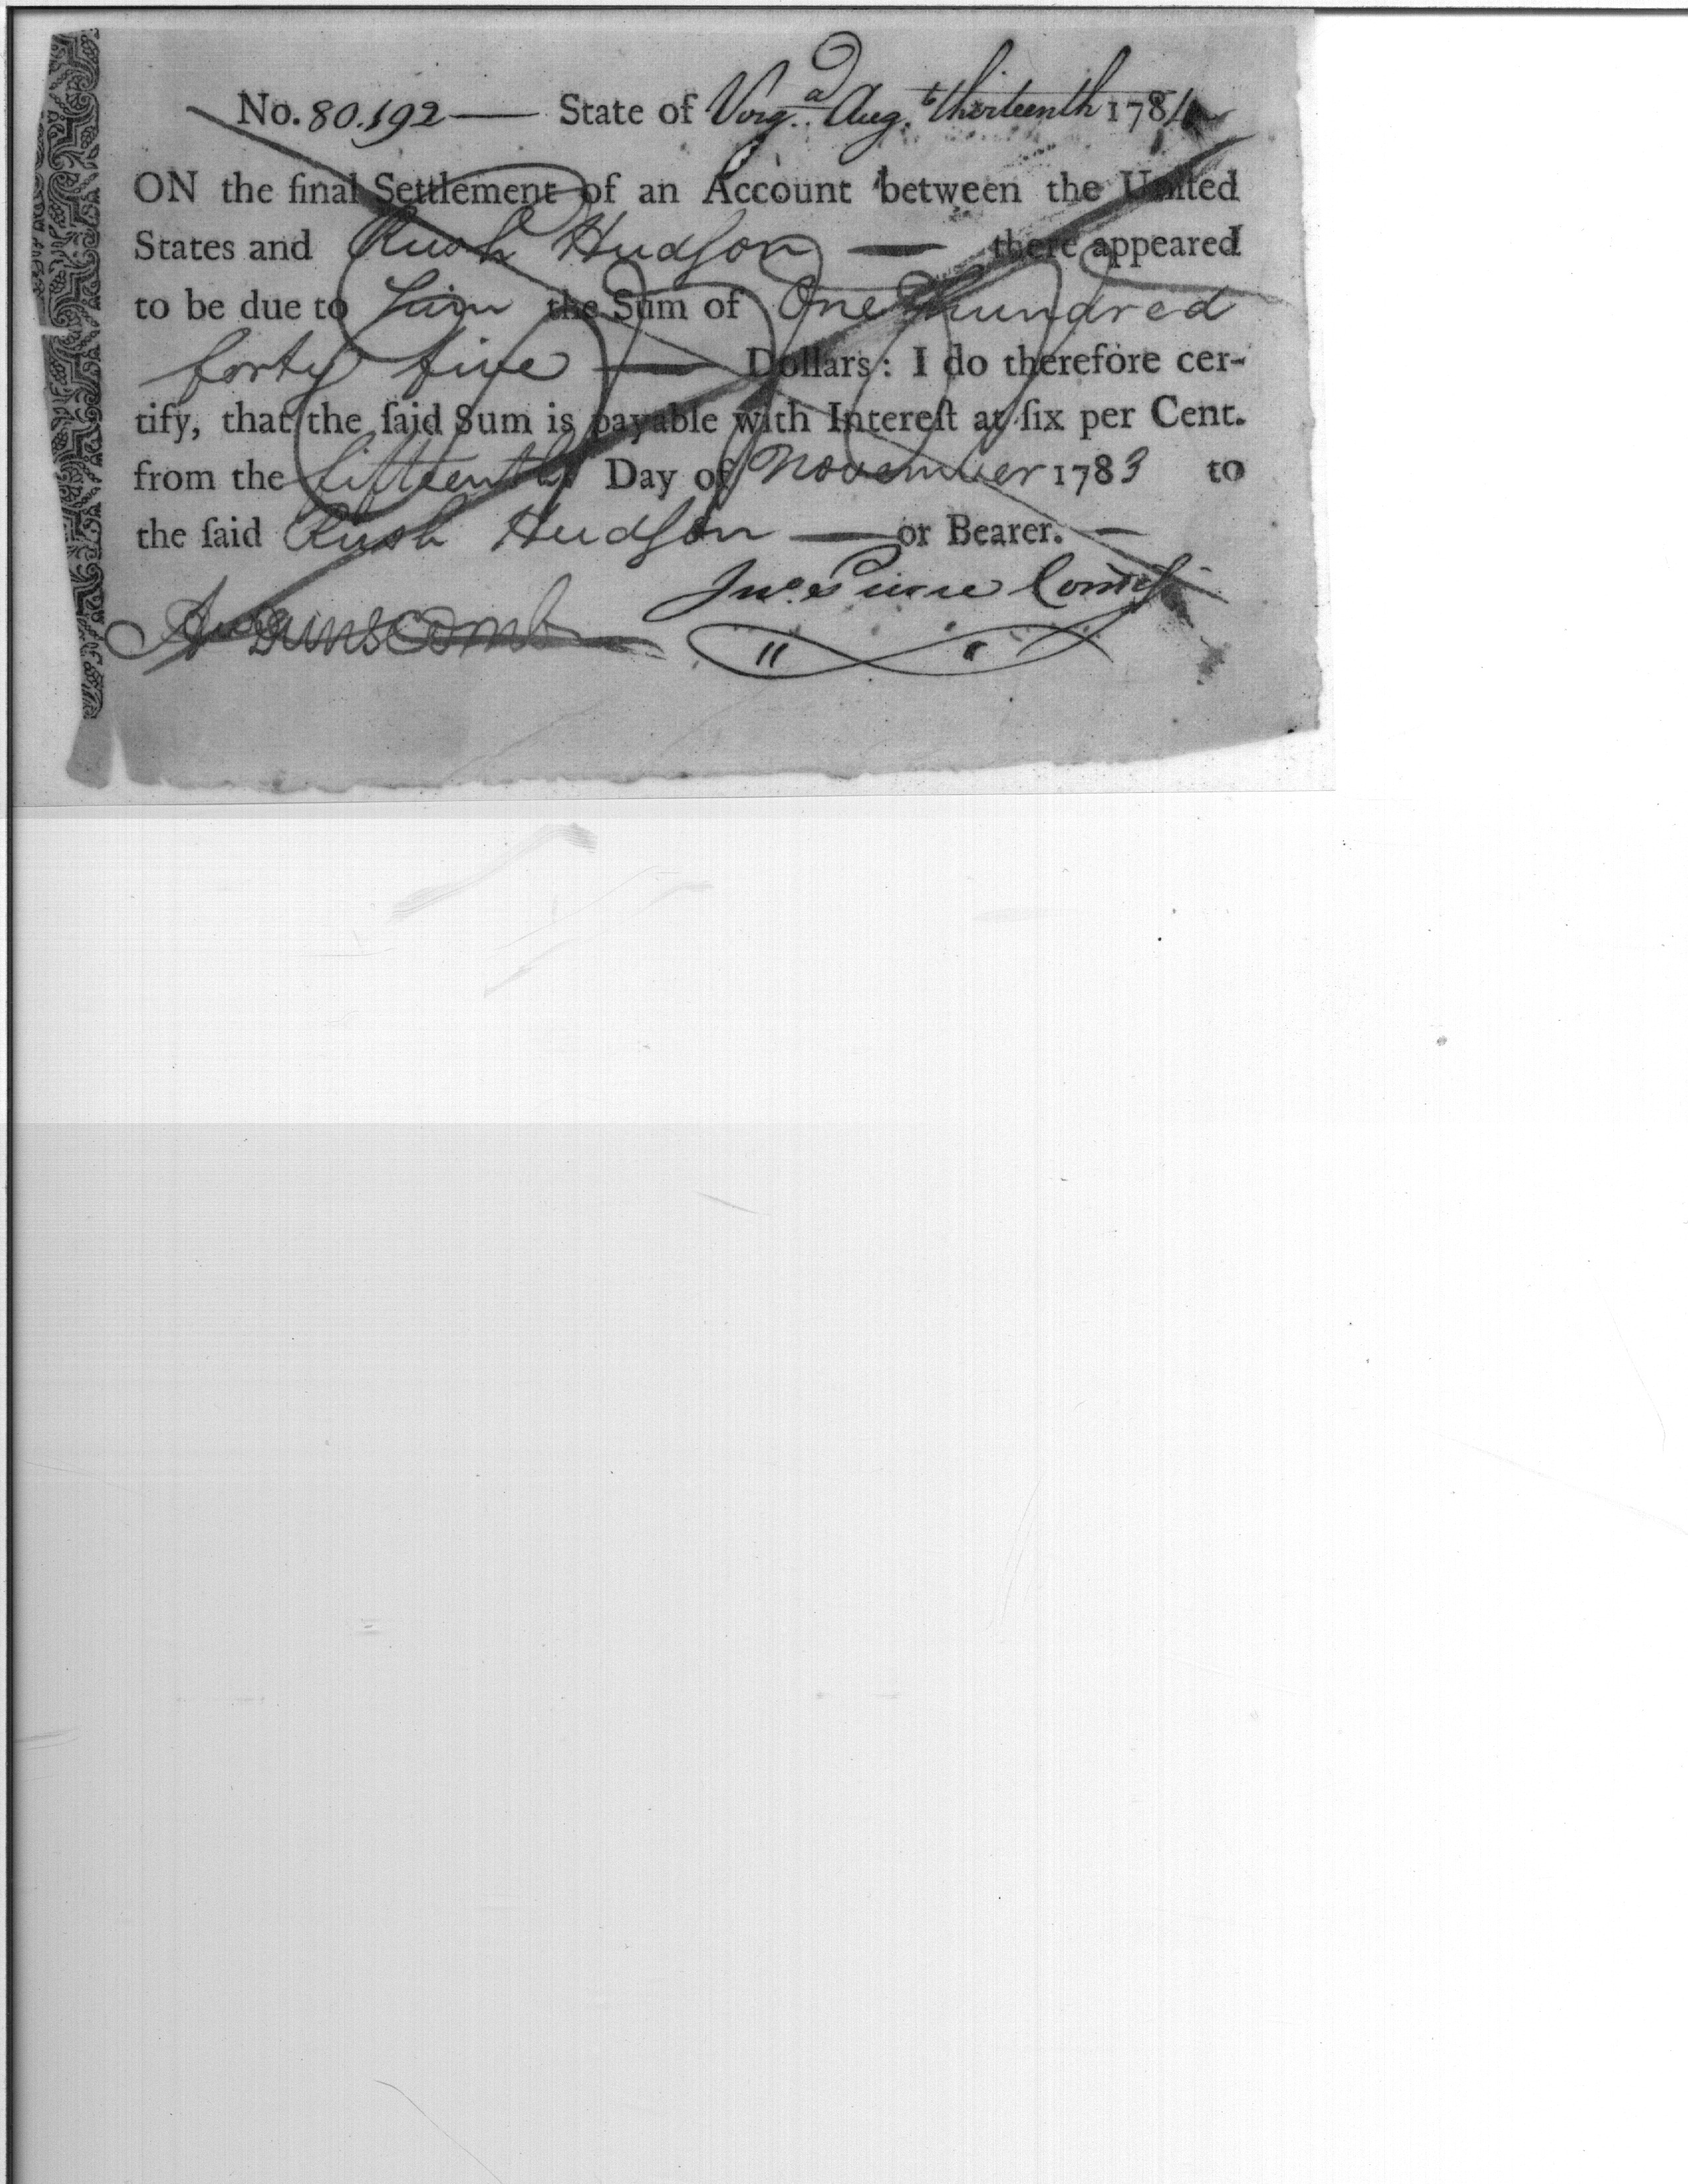 No. 80.192 — State of Virg.a Aug.t thirteenth 178
ON the final Settlement of an Account between the United
States and Rush Hudson — there appeared
to be due to him the Sum of One hundred
forty five — Dollars: I do therefore cer-
tify, that the ſaid Sum is payable with Intereſt at ſix per Cent.
from the fifteenth Day of November 1783 to
the ſaid Rush Hudson — or Bearer. —
Jno. Pierce Comisr
A Dunscomb